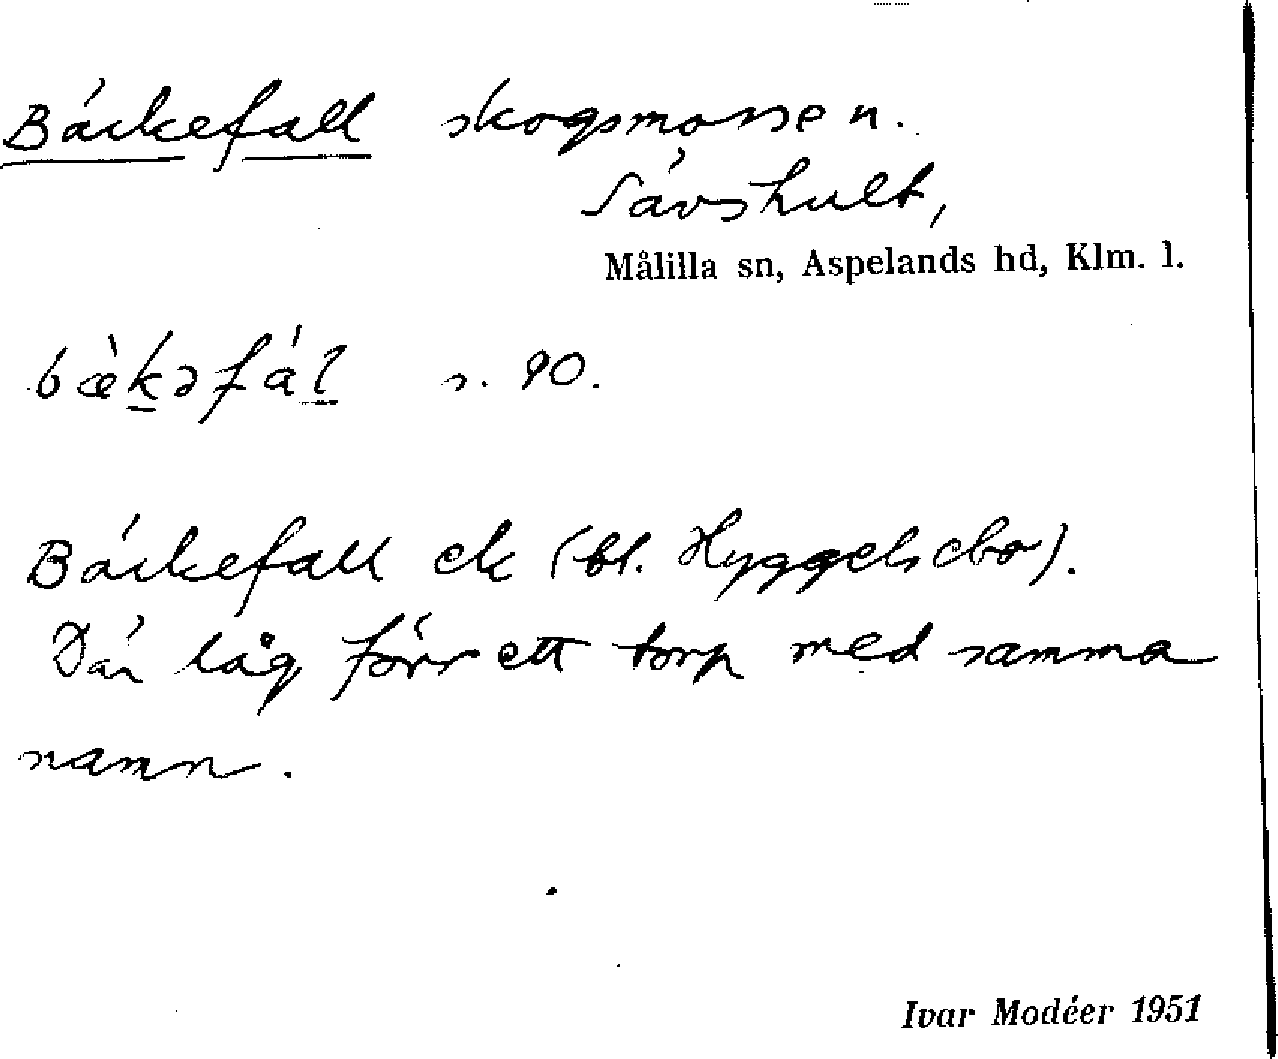 Bäckefall skogsmossen.
Sävshult,
Målilla sn, Aspelands hd, Klm. l.
bæ̀kəfál s. 90.
Bäckefall ek (bl. Hyggelsebo).
Där låg förr ett torp med samma
namn.
Ivar Modéer 1951